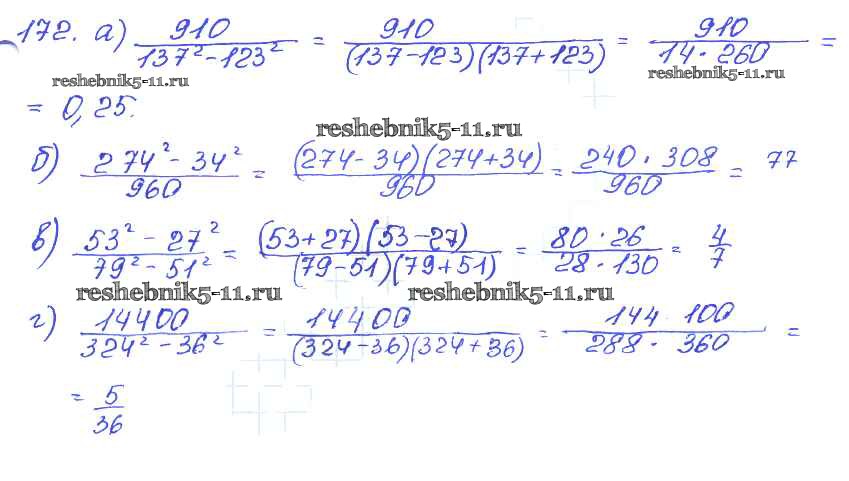 172. а) 910 / (137² - 123²) = 910 / ((137-123)(137+123)) = 910 / (14 · 260) =
reshebnik5-11.ru reshebnik5-11.ru
= 0,25.
reshebnik5-11.ru
б) (274² - 34²) / 960 = ((274-34)(274+34)) / 960 = (240 · 308) / 960 = 77
в) (53² - 27²) / (79² - 51²) = ((53+27)(53-27)) / ((79-51)(79+51)) = (80 · 26) / (28 · 130) = 4/7
reshebnik5-11.ru reshebnik5-11.ru
г) 14400 / (324² - 36²) = 14400 / ((324-36)(324+36)) = (144 100) / (288 · 360) =
= 5/36